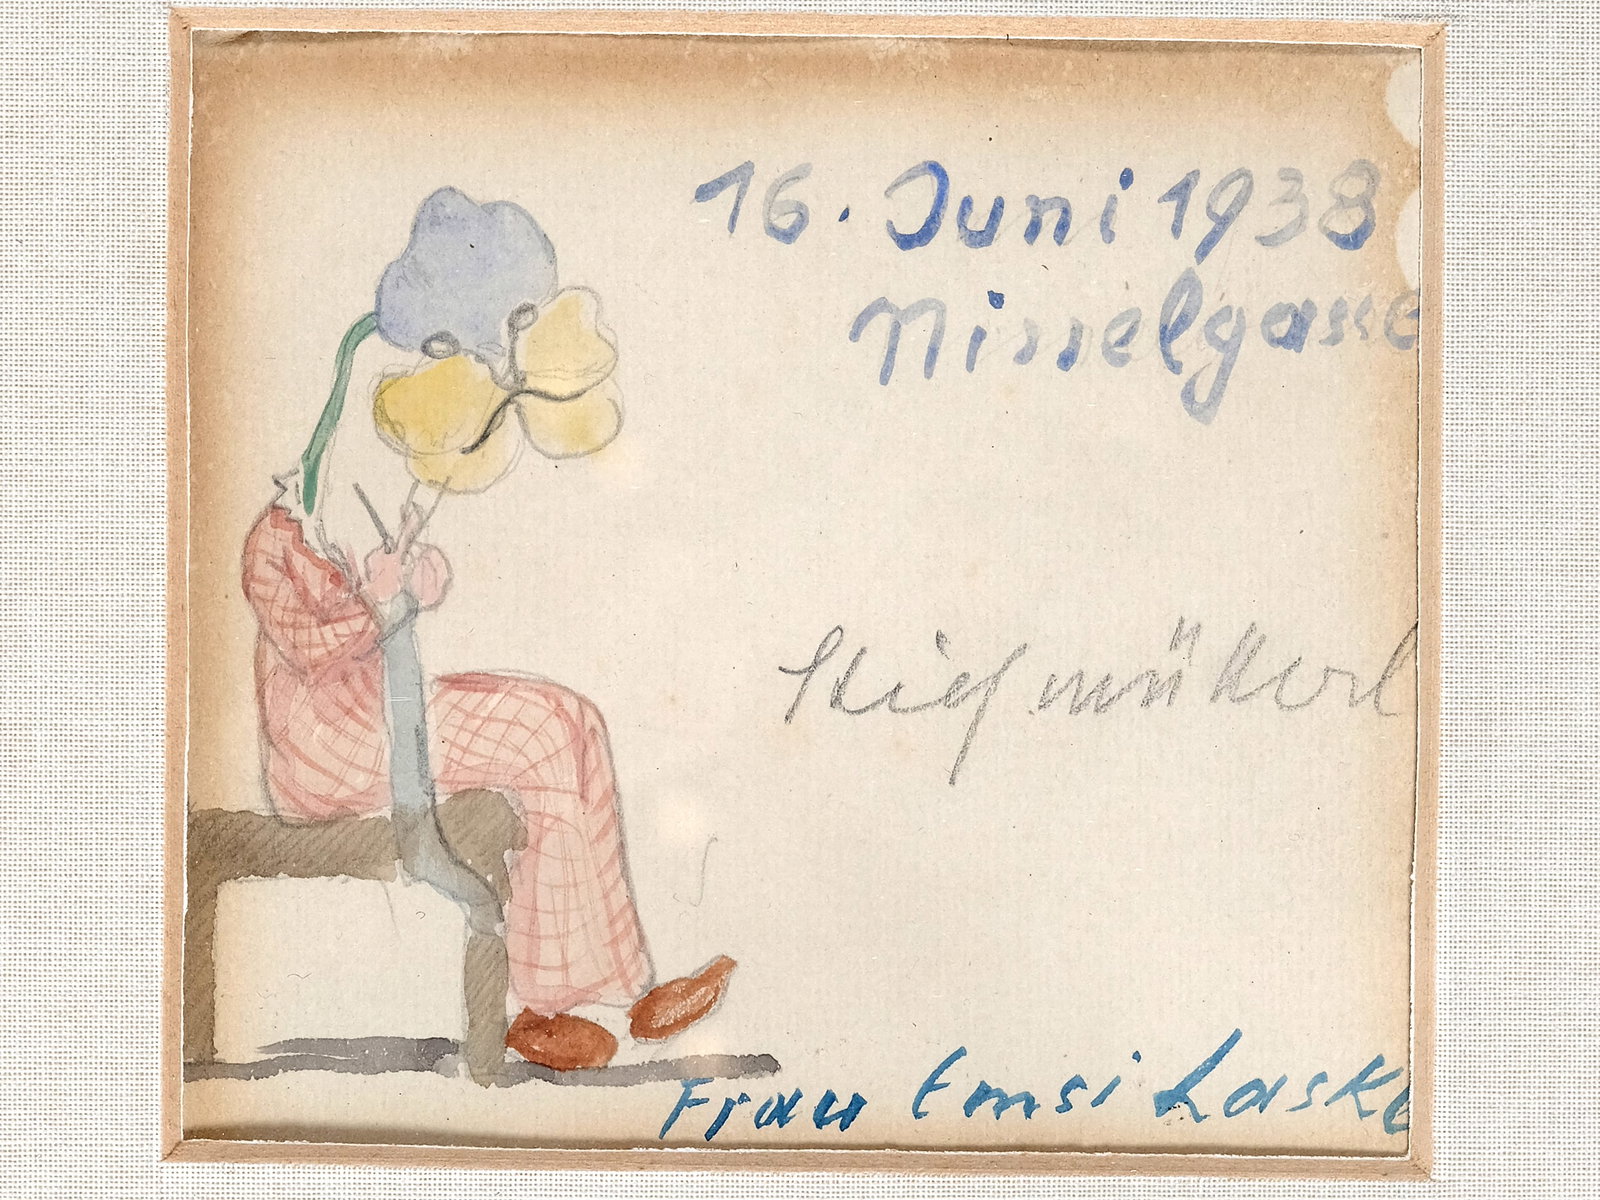 16. Juni 1938
Nisselgasse
Stiefmütterl
Frau Emsi Laske